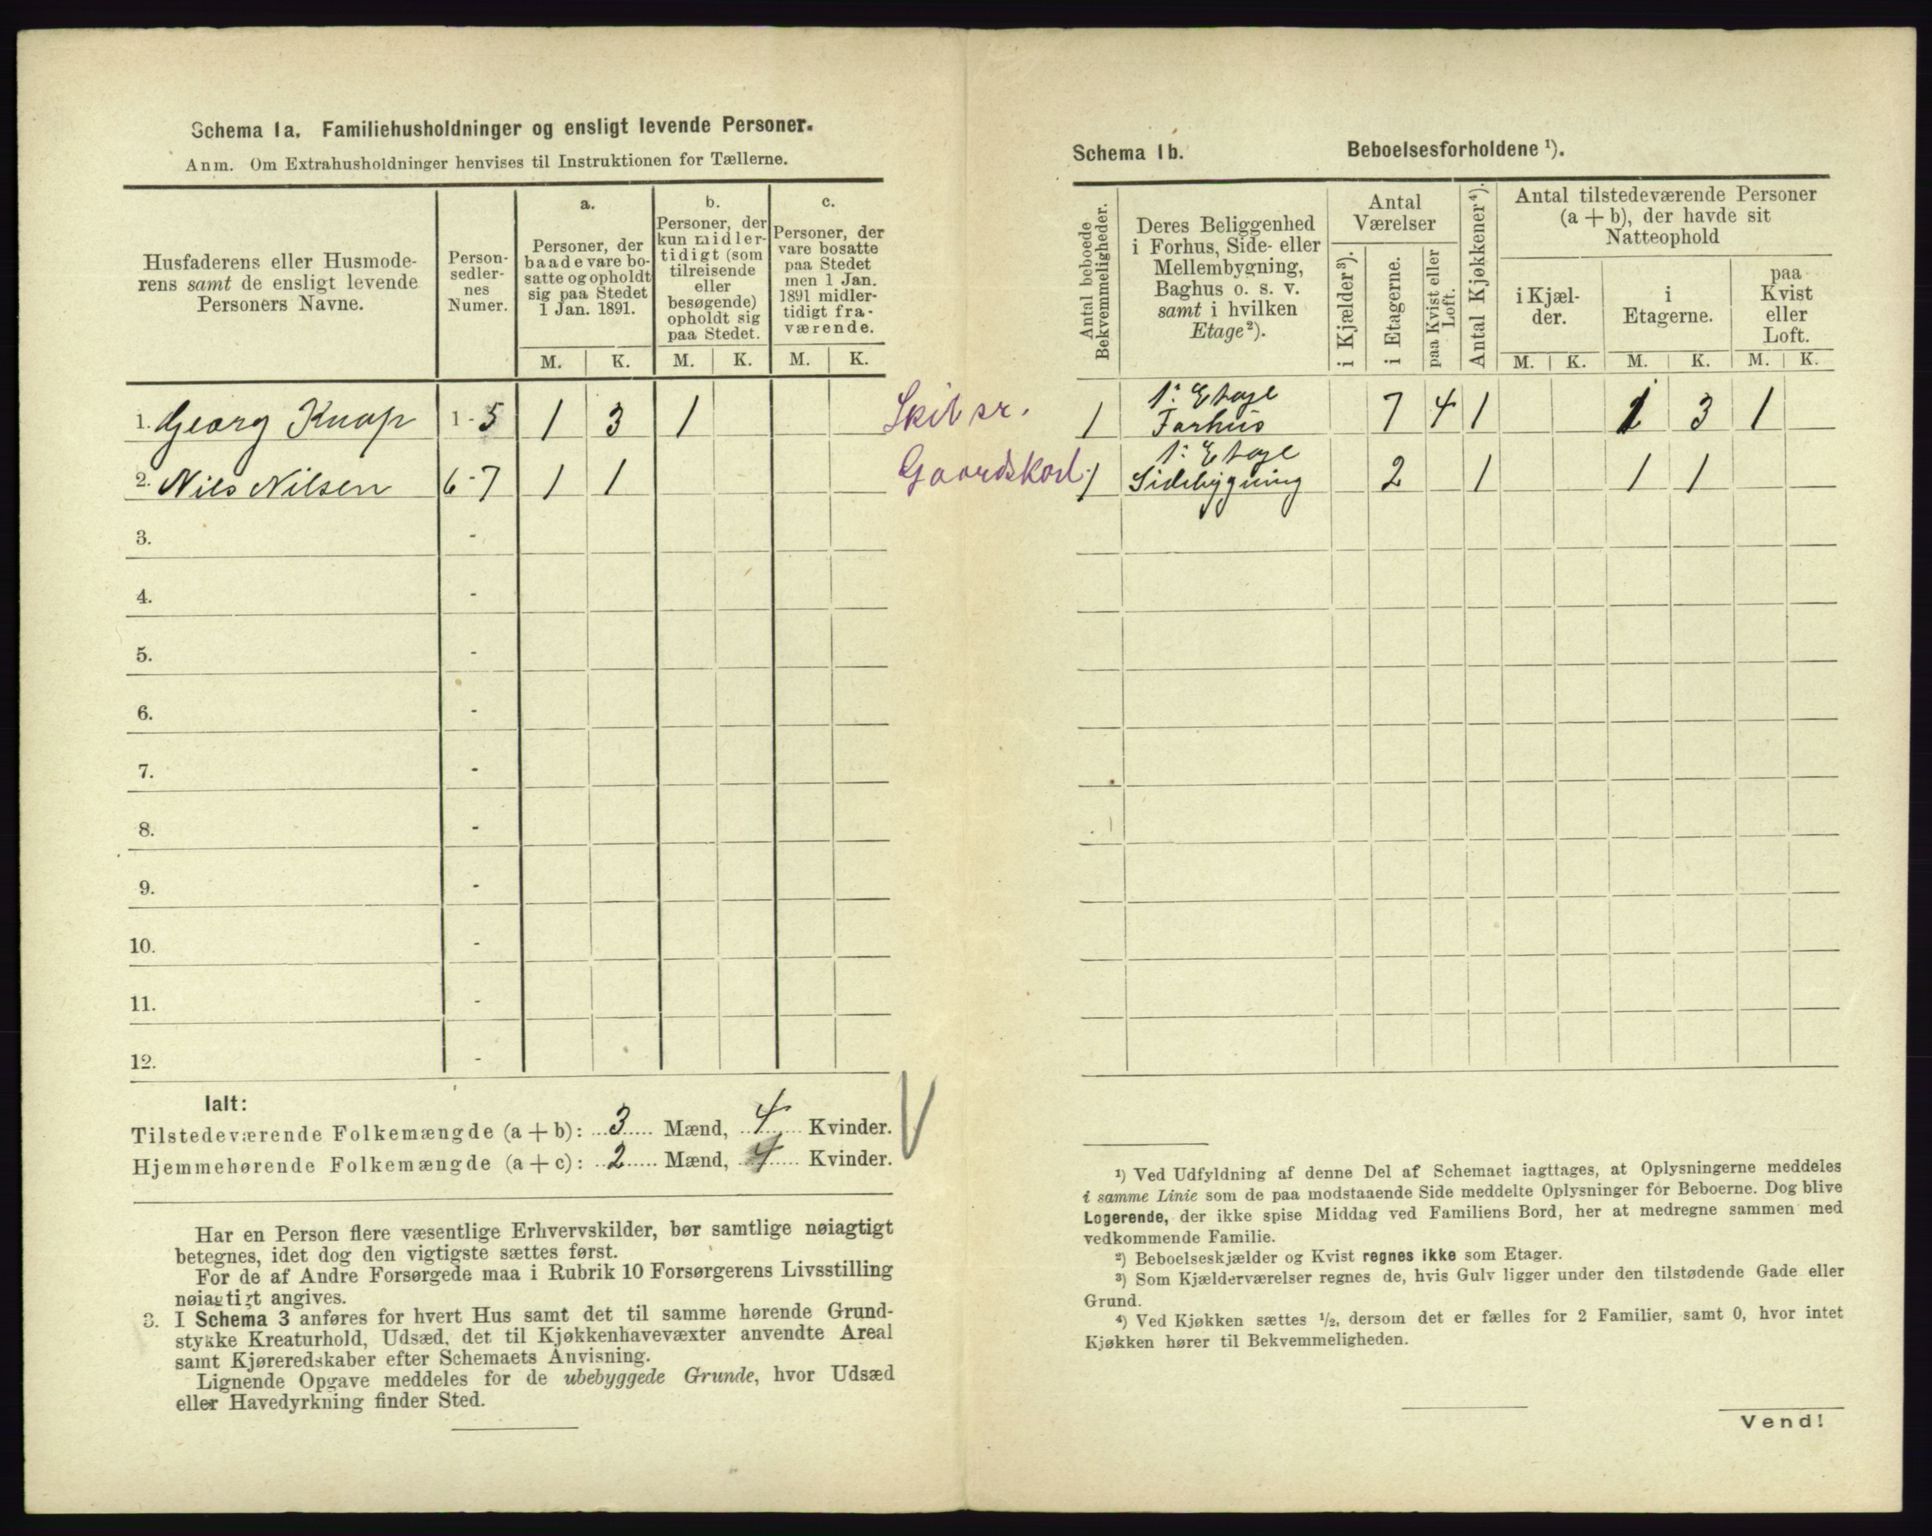 Schema 1a. Familiehusholdninger og ensligt levende Personer.
Anm. Om Extrahusholdninger henvises til Instruktionen for Tællerne.
Husfaderens eller Husmode-
rens samt de ensligt levende
Personers Navne.
Person-
sedler-
nes
Numer.
a.
Personer, der
baade vare bo-
satte og opholdt
sig paa Stedet
1 Jan. 1891.
b.
Personer, der
kun midler-
tidigt (som
tilreisende
eller
besøgende)
opholdt sig
paa Stedet.
c.
Personer, der
vare bosatte
paa Stedet
men 1 Jan.
1891 midler-
tidigt fra-
værende.
M. K. M. K. M. K.
1. Georg Knap 1-5 1 3 1
2. Nils Nilsen 6-7 1 1
3. -
4. -
5. -
6. -
7. -
8. -
9. -
10. -
11. -
12. -
Ialt:
Tilstedeværende Folkemængde (a+b): 3 Mænd, 4 Kvinder.
Hjemmehørende Folkemængde (a+c): 2 Mænd, 4 Kvinder.
Har en Person flere væsentlige Erhvervskilder, bør samtlige nøiagtigt
betegnes, idet dog den vigtigste sættes først.
For de af Andre Forsørgede maa i Rubrik 10 Forsørgerens Livsstilling
nøiagtigt angives.
3. I Schema 3 anføres for hvert Hus samt det til samme hørende Grund-
stykke Kreaturhold, Udsæd, det til Kjøkkenhavevæxter anvendte Areal
samt Kjøreredskaber efter Schemaets Anvisning.
Lignende Opgave meddeles for de ubebyggede Grunde, hvor Udsæd
eller Havedyrkning finder Sted.
Schema 1b. Beboelsesforholdene ¹).
Antal beboede
Bekvemmeligheder.
Deres Beliggenhed
i Forhus, Side- eller
Mellembygning,
Baghus o. s. v.
samt i hvilken
Etage²).
Antal
Værelser
i Kjælder³).
i Etagerne.
paa Kvist eller
Loft.
Antal Kjøkkener⁴).
Antal tilstedeværende Personer
(a+b), der havde sit
Natteophold
i Kjæl-
der.
i
Etagerne.
paa
Kvist
eller
Loft.
M. K. M. K. M. K.
1: Etage
1 Forhus 7 4 1 1 3 1
1: Etage
Gaardskarl 1 Sidebygning 2 1 1 1
¹) Ved Udfyldning af denne Del af Schemaet iagttages, at Oplysningerne meddeles
i samme Linie som de paa modstaaende Side meddelte Oplysninger for Beboerne. Dog blive
Logerende, der ikke spise Middag ved Familiens Bord, her at medregne sammen med
vedkommende Familie.
²) Beboelseskjælder og Kvist regnes ikke som Etager.
³) Som Kjælderværelser regnes de, hvis Gulv ligger under den tilstødende Gade eller
Grund.
⁴) Ved Kjøkken sættes ½, dersom det er fælles for 2 Familier, samt 0, hvor intet
Kjøkken hører til Bekvemmeligheden.
Vend!